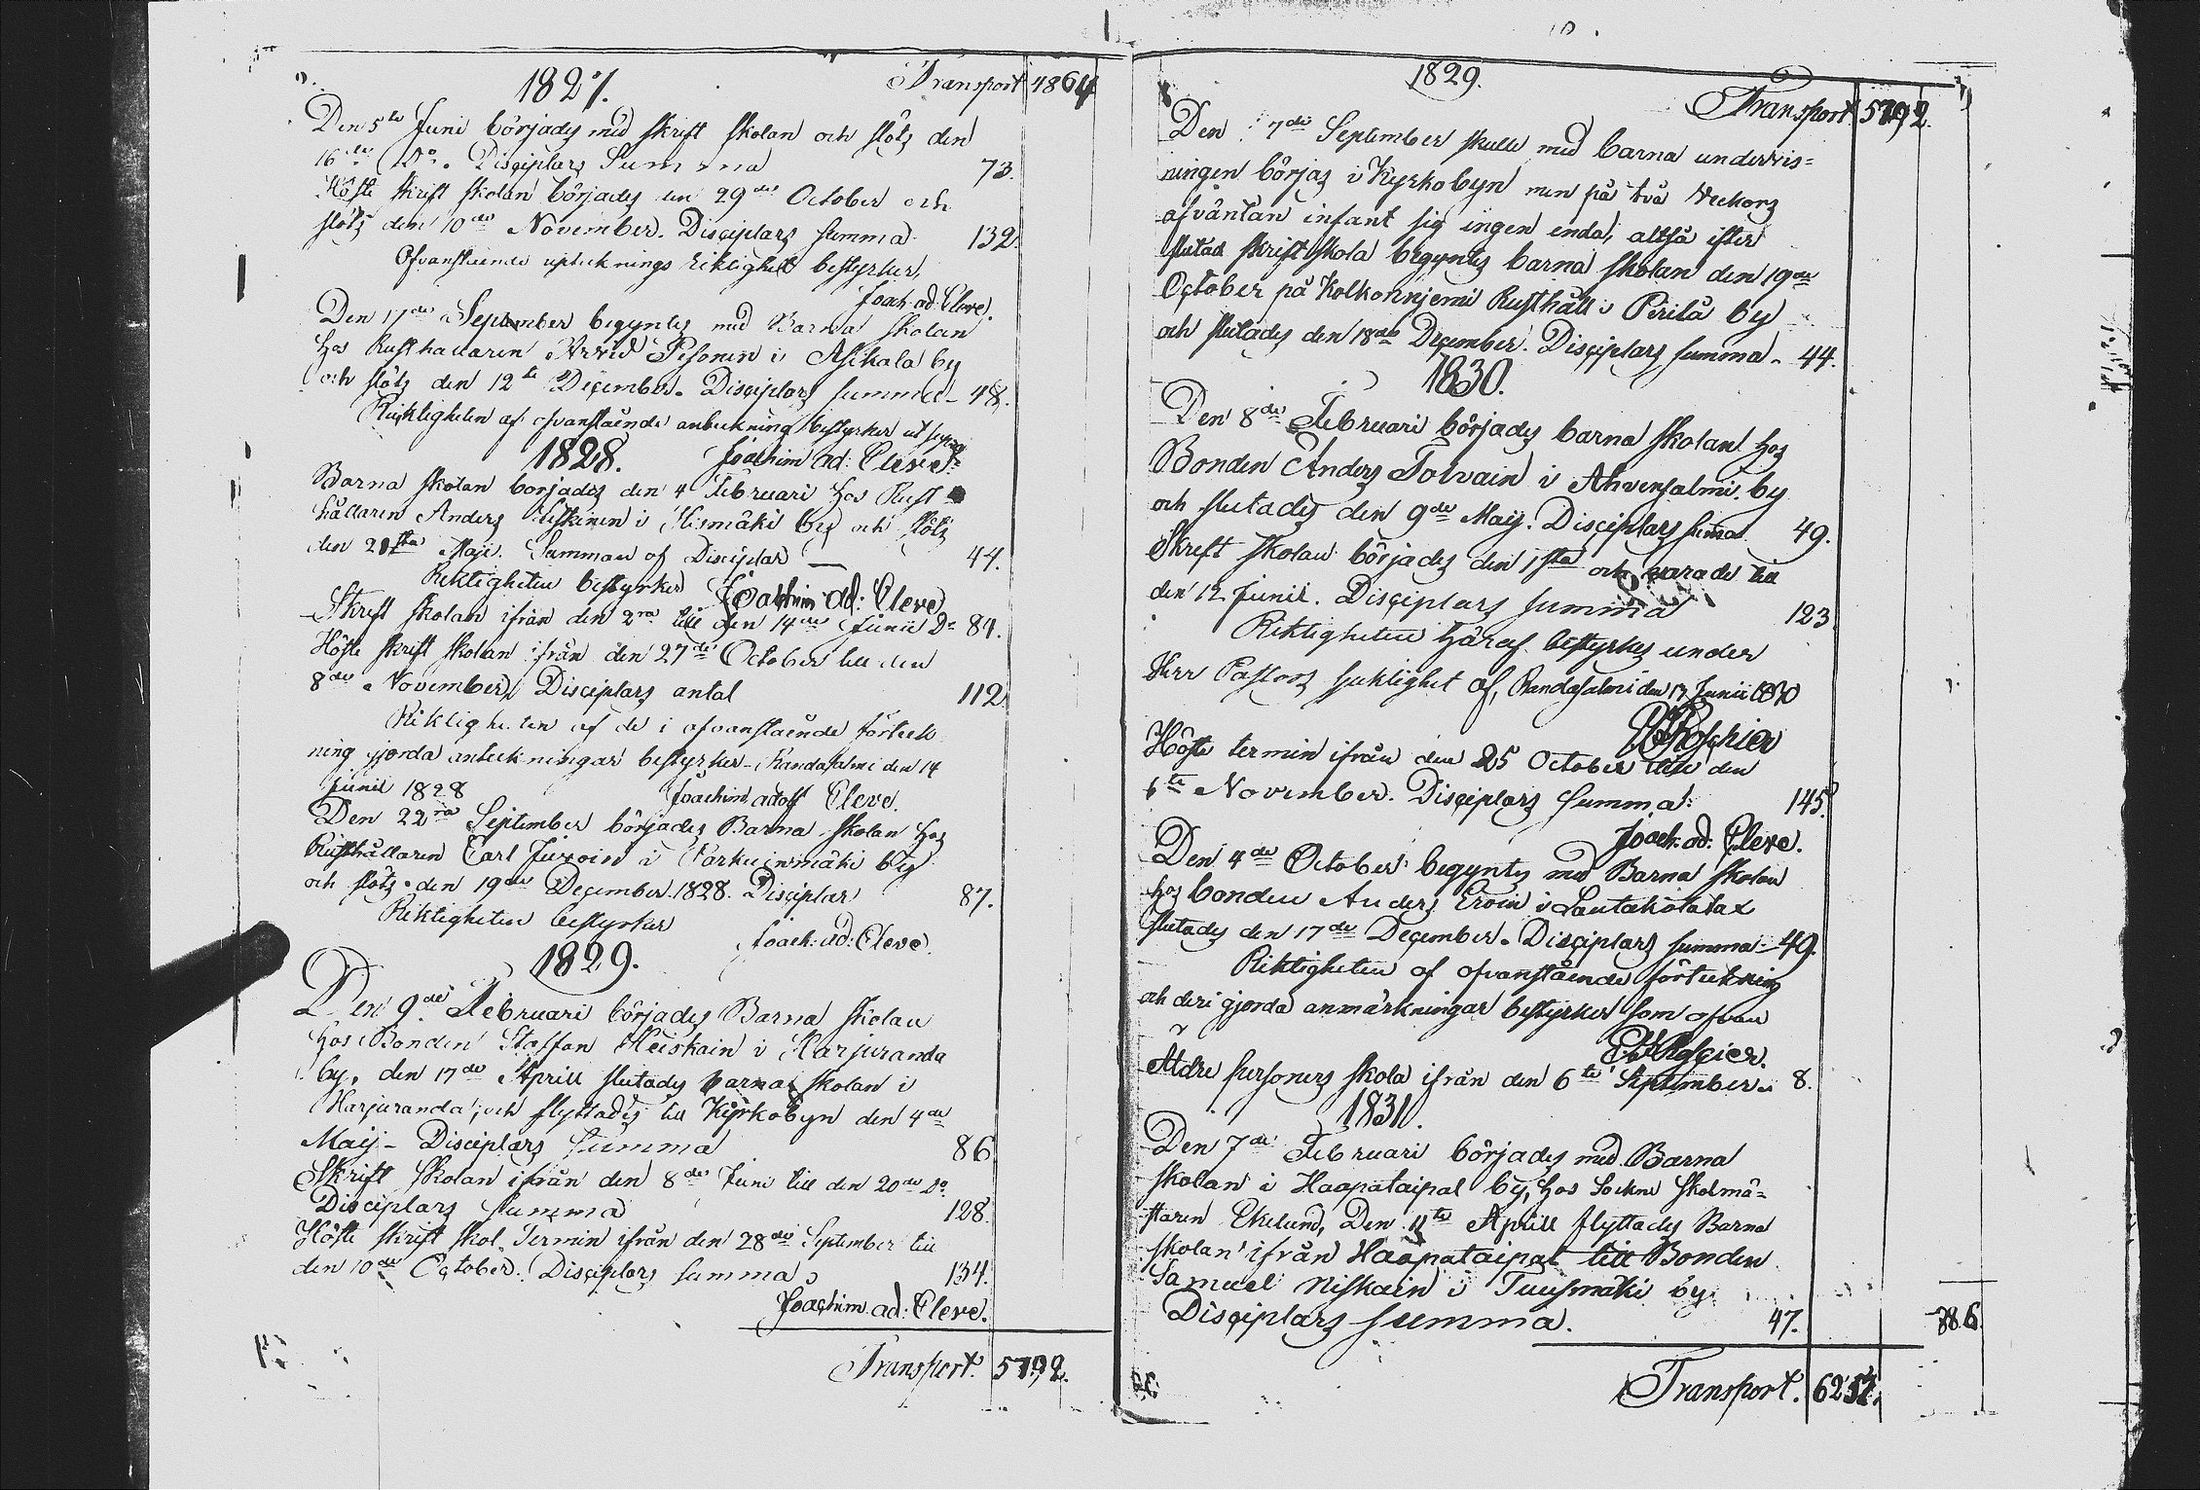 1827. Transport 4864
Den 5te Juni börjades med skrift skolan och slöts den
16de Do. Disciplars Summa 73.
Höste skrift skolan börjades den 29de October och
slöts den 10de November. Disciplars summa 132.
Ofvanstående uptecknings riktighet bestyrker,
Joach: ad: Cleve.
Den 17de September begyntes med Barna skolan
hos Rusthållaren Arvid Pesonen i Asikala by
och slöts den 12te December. Disciplars summa 48.
Riktigheten af ofvanstående anteckning bestyrker ut supra
1828. Joachim ad: Cleve.
Barna skolan börjades den 4 Februari hos Rust
hållaren Anders i by och slöts
den 21sta Maji. Summan af Disciplar 44.
Riktigheten bestyrker Joachim ad: Cleve
Skrift skolan ifrån den 2ra till den 14de Junii Do 84.
Höste skrift skolan ifrån den 27de October till den
8de November, Disciplars antal 112.
Riktigheten af de i ofvanstående förteck
ning gjorda anteckningar bestyrker Randasalmi den 14
Junii 1828 Joachim adolf Cleve.
Den 22ra September börjades Barna skolan hos
Rusthållaren Carl Juvoin i by
och slöts den 19de December 1828. Disciplar 87.
Riktigheten bestyrker Joach: ad: Cleve
1829.
Den 9de Februari börjades Barna skolan
hos Bonden Staffan Heiskain i Harjuranda
by, den 17de Aprill slutades barna skolan i
Harjuranda, och flyttades till Kyrkobyn den 4de
Maij - Disciplars summa 86
Skrift skolan ifrån den 8de Juni till den 20de Do.
Disciplars summa 128.
Höste skrift skol. Termin ifrån den 28de September till
den 10de October. Disciplars summa 134.
Joachim ad: Cleve.
Transport. 5792.
1829.
Transport 5792.
Den 7de September skulle med barna undervis=
ningen börjas i Kyrkobyn men på två veckors
afväntan infant sig ingen enda, altså efter
slutad skrift skola begyntes barna skolan den 19de
October på Kolkonnjemi Rusthåll i Pirilä by
och slutades den 18de December. Disciplars summa - 44.
1830.
Den 8de Februari börjades barna skolan hos
Bonden Anders Tolvain i Ahvensalmi by
och slutades den 9de Maij. Disciplars summa 49.
Skrift skolan börjades den 1sta och varade till
den 12 Junii. Disciplars summa 123
Riktigheten häraf bestyrkes under
Herr Pastors sjuklighet af, Randasalmi den 17 Junii 1830
Höste termin ifrån den 25 October till den
6te November. Disciplars summa: 145.
Joach: ad: Cleve.
Den 4de October begyntes med Barna skolan
hos bonden Anders Eroin i Lautakotatax
slutades den 17de December. Disciplars summa - 49.
Riktigheten af ofvanstående förtekning
och deri gjorda anmärkningar bestyrker som ofvan
Äldre personers skola ifrån den 6te September 8.
1831.
Den 7de Februari börjades med Barna
skolan i Haapataipal by, hos Sockne Skolmä=
staren Ekelund, Den 11te Aprill flyttades Barna
skolan ifrån Haapataipal till Bonden
Samuel Niskain i Tuusmäki by.
Disciplars summa. 47.
Transport. 6257.